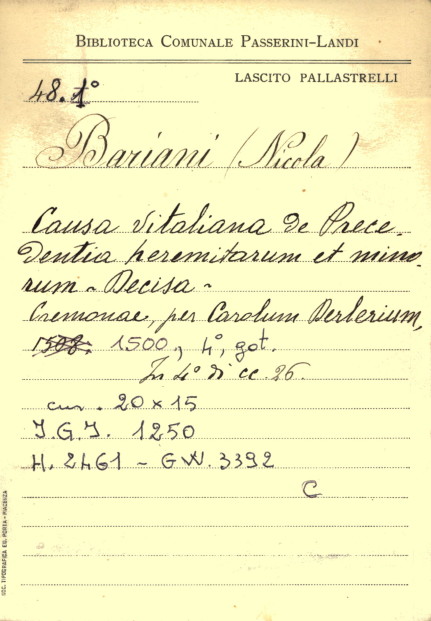 BIBLIOTECA COMUNALE PASSERINI-LANDI
LASCITO PALLASTRELLI
48. 1°
Bariani (Nicola)
Causa Vitaliana de Prece-
dentia heremitarum et mino-
rum - Decisa -
Cremonae, per Carolum Derlerium,
1500, 4°, got.
In 4° di cc. 26.
cm. 20 x 15
I.G.I. 1250
H. 2461 - GW. 3392
C
SOC. TIPOGRAFICA ED. PORTA - PIACENZA